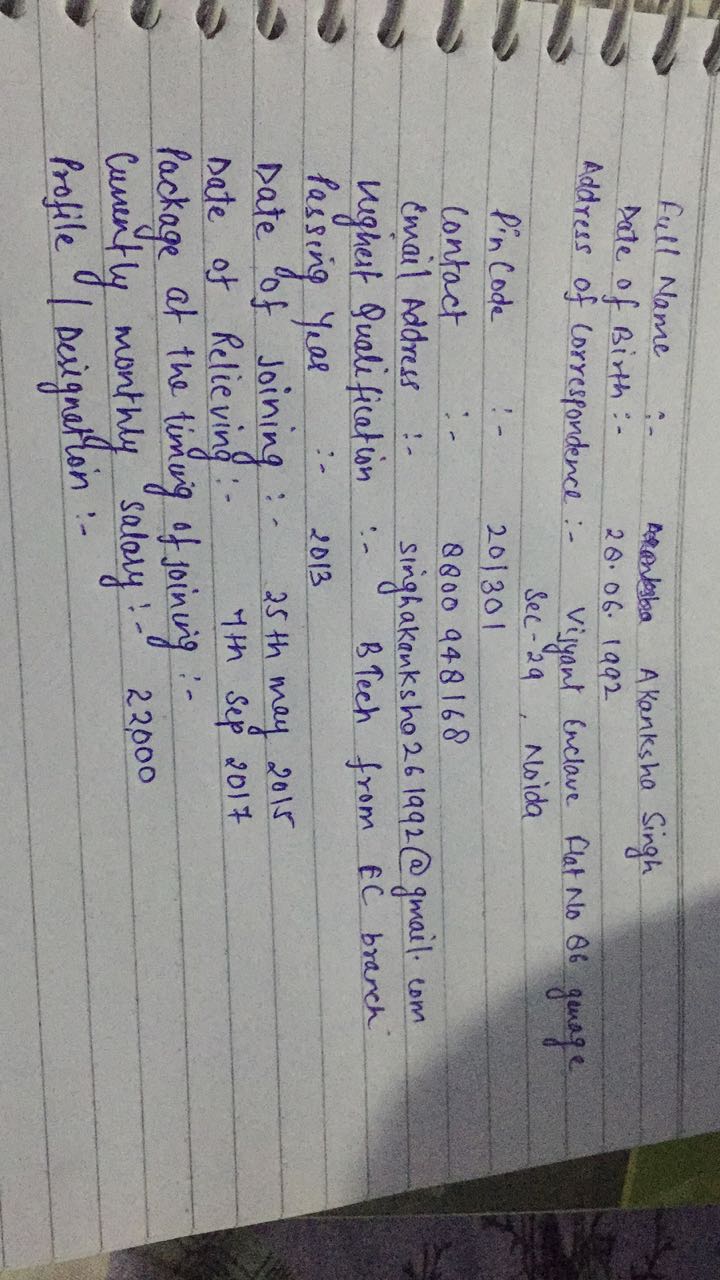 Full Name :- Akanksha Singh
Date of Birth :- 28.06.1992
Address of Correspondence :- Vijyant Enclave Flat No 86 garage
Sec-29, Noida
Pin Code :- 201301
Contact :- 8800948168
Email Address :- singhakanksha261992@gmail.com
Highest Qualification :- BTech from EC branch
Passing Year :- 2013
Date of Joining :- 25th may 2015
Date of Relieving :- 7th Sep 2017
Package at the timing of joining :-
Currently monthly salary :- 22,000
Profile / Designation :-